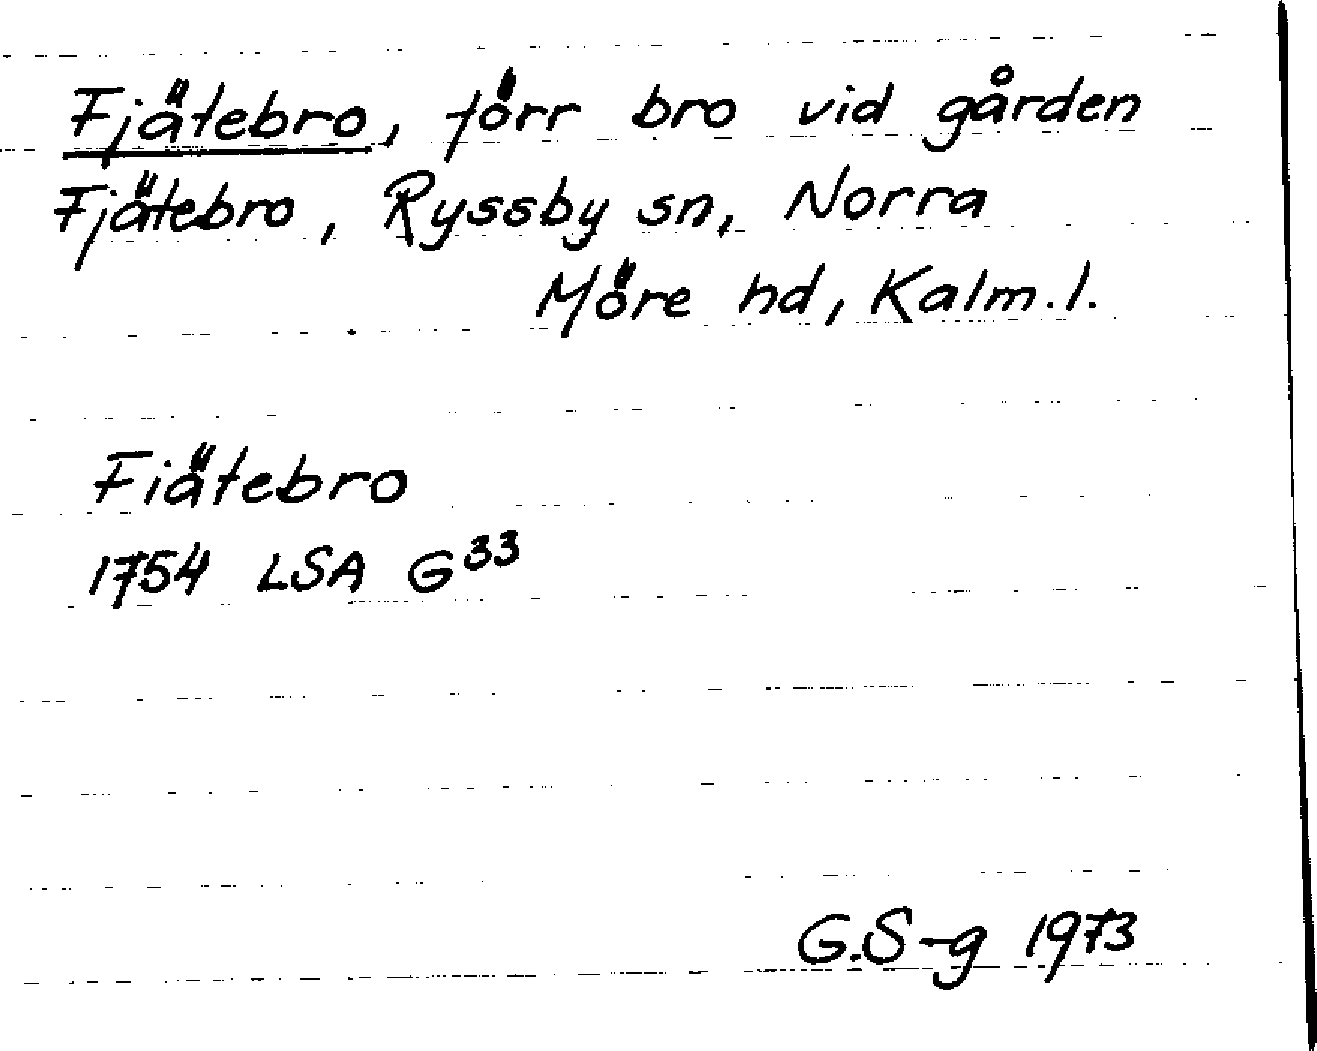 Fjätebro, förr bro vid gården
Fjätebro, Ryssby sn, Norra
Möre hd, Kalm. l.
Fiätebro
1754 LSA G³³
G.S-g 1973